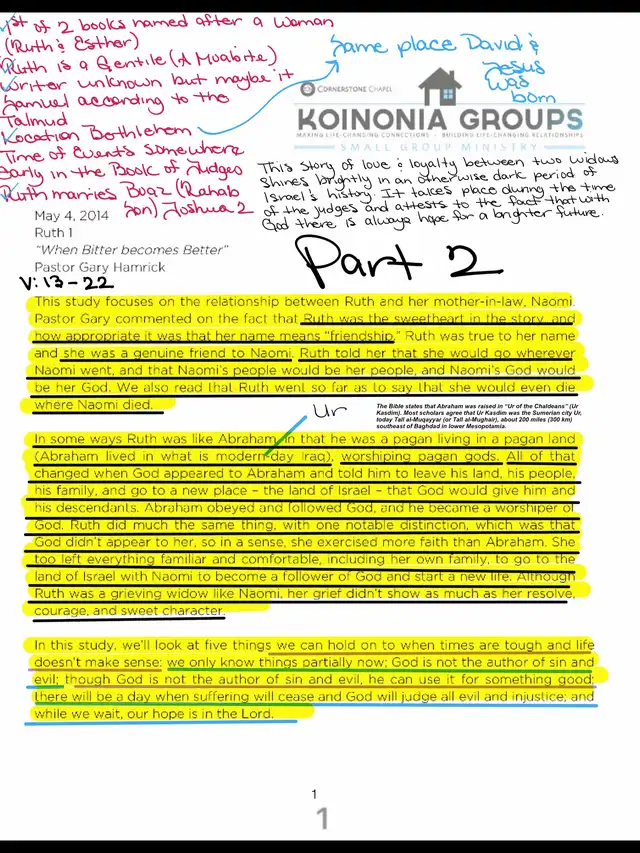 1st of 2 books named after a woman
(Ruth & Esther)
Ruth is a Gentile (A Moabite)
Writer unknown but maybe it
Samuel according to the
Talmud
Location Bethlehem
Time of Events somewhere
early in the Book of Judges
Ruth marries Boaz (Rahab
son) Joshua 2
Same place David &
Jesus
was
born
CORNERSTONE CHAPEL
KOINONIA GROUPS
MAKING LIFE-CHANGING CONNECTIONS • BUILDING LIFE-CHANGING RELATIONSHIPS
SMALL GROUP MINISTRY
This story of love & loyalty between two widows
shines brightly in an otherwise dark period of
Israel's history. It takes place during the time
of the judges and attests to the fact that with
God there is always hope for a brighter future.
May 4, 2014
Ruth 1
"When Bitter becomes Better"
Pastor Gary Hamrick
Part 2
V: 13-22
This study focuses on the relationship between Ruth and her mother-in-law, Naomi.
Pastor Gary commented on the fact that Ruth was the sweetheart in the story, and
how appropriate it was that her name means "friendship." Ruth was true to her name
and she was a genuine friend to Naomi. Ruth told her that she would go wherever
Naomi went, and that Naomi's people would be her people, and Naomi's God would
be her God. We also read that Ruth went so far as to say that she would even die
where Naomi died.
Ur
The Bible states that Abraham was raised in "Ur of the Chaldeans" (Ur
Kasdim). Most scholars agree that Ur Kasdim was the Sumerian city Ur,
today Tall al-Muqayyar (or Tall al-Mughair), about 200 miles (300 km)
southeast of Baghdad in lower Mesopotamia.
In some ways Ruth was like Abraham, in that he was a pagan living in a pagan land
(Abraham lived in what is modern-day Iraq), worshiping pagan gods. All of that
changed when God appeared to Abraham and told him to leave his land, his people,
his family, and go to a new place – the land of Israel – that God would give him and
his descendants. Abraham obeyed and followed God, and he became a worshiper of
God. Ruth did much the same thing, with one notable distinction, which was that
God didn't appear to her, so in a sense, she exercised more faith than Abraham. She
too left everything familiar and comfortable, including her own family, to go to the
land of Israel with Naomi to become a follower of God and start a new life. Although
Ruth was a grieving widow like Naomi, her grief didn't show as much as her resolve,
courage, and sweet character.
In this study, we'll look at five things we can hold on to when times are tough and life
doesn't make sense: we only know things partially now; God is not the author of sin and
evil; though God is not the author of sin and evil, he can use it for something good;
there will be a day when suffering will cease and God will judge all evil and injustice; and
while we wait, our hope is in the Lord.
1
1